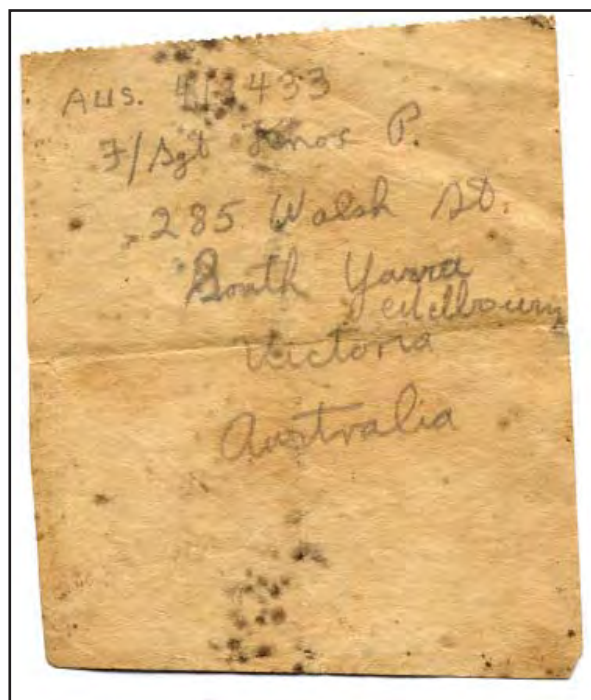 Aus.
F/Sgt P.
285 Walsh St.
South Yarra
Melbourne
Victoria
Australia